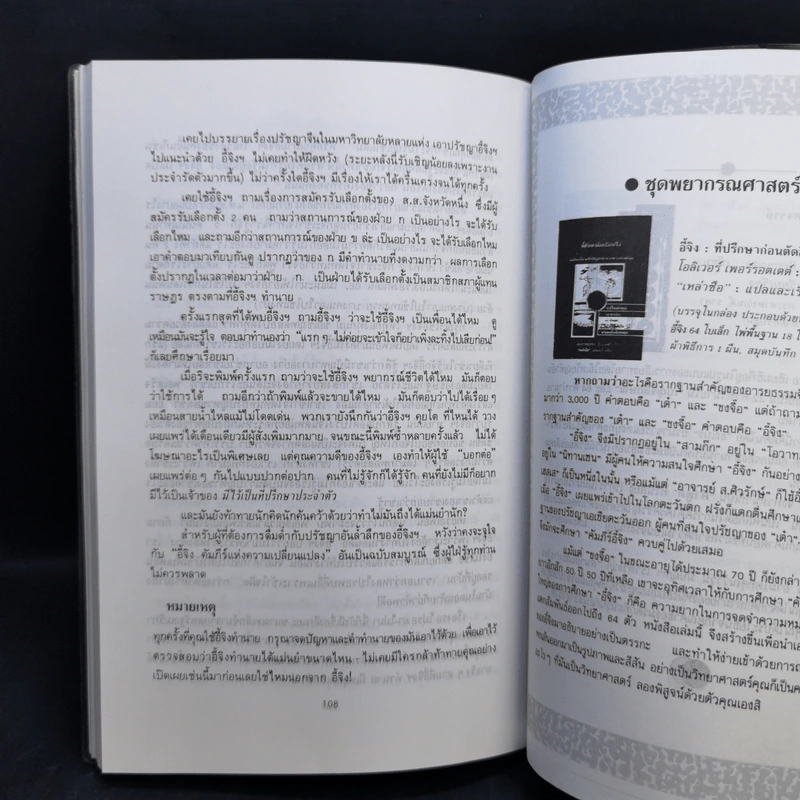 เคยไปบรรยายเรื่องปรัชญาจีนในมหาวิทยาลัยหลายแห่ง เอาปรัชญาอี้จิงฯ
ไปแนะนำด้วย อี้จิงฯ ไม่เคยทำให้ผิดหวัง (ระยะหลังนี้รับเชิญน้อยลงเพราะงาน
ประจำรัดตัวมากขึ้น) ไม่ว่าครั้งใดอี้จิงฯ มีเรื่องให้เราได้ครื้นเครงจนได้ทุกครั้ง
เคยใช้อี้จิงฯ ถามเรื่องการสมัครรับเลือกตั้งของ ส.ส.จังหวัดหนึ่ง ซึ่งมีผู้
สมัครรับเลือกตั้ง 2 คน ถามว่าสถานการณ์ของฝ่าย ก เป็นอย่างไร จะได้รับ
เลือกไหม และถามอีกว่าสถานการณ์ของฝ่าย ข ล่ะ เป็นอย่างไร จะได้รับเลือกไหม
เอาคำตอบมาเทียบกันดู ปรากฏว่าของ ก มีคำทำนายที่งดงามกว่า ผลการเลือก
ตั้งปรากฏในเวลาต่อมาว่าฝ่าย ก. เป็นฝ่ายได้รับเลือกตั้งเป็นสมาชิกสภาผู้แทน
ราษฎร ตรงตามที่อี้จิงฯ ทำนาย
ครั้งแรกสุดที่ได้พบอี้จิงฯ ถามอี้จิงฯ ว่าจะใช้อี้จิงฯ เป็นเพื่อนได้ไหม ดู
เหมือนมันจะรู้ใจ ตอบมาทำนองว่า "แรก ๆ ไม่ค่อยจะเข้าใจก็อย่าเพิ่งละทิ้งไปเสียก่อน"
ก็เลยศึกษาเรื่อยมา
เมื่อริจะพิมพ์ครั้งแรก ถามว่าจะใช้อี้จิงฯ พยากรณ์ชีวิตได้ไหม มันก็ตอบ
ว่าใช้การได้ ถามอีกว่าถ้าพิมพ์แล้วจะขายได้ไหม มันก็ตอบว่าไปได้เรื่อย ๆ
เหมือนสายน้ำไหลแม้ไม่โดดเด่น พวกเรายังนึกกันว่าอี้จิงฯ คุยโต ที่ไหนได้ วาง
เผยแพร่ได้เดือนเดียวมีผู้สั่งเพิ่มมากมาย จนขณะนี้พิมพ์ซ้ำหลายครั้งแล้ว ไม่ได้
โฆษณาอะไรเป็นพิเศษเลย แต่คุณความดีของอี้จิงฯ เองทำให้ผู้ใช้ "บอกต่อ"
เผยแพร่ต่อๆ กันไปแบบปากต่อปาก คนที่ไม่รู้จักก็ได้รู้จัก คนที่ยังไม่มีก็อยาก
มีไว้เป็นเจ้าของ มีไว้เป็นที่ปรึกษาประจำตัว
และมันยังท้าทายนักคิดนักค้นคว้าด้วยว่าทำไมมันถึงได้แม่นยำนัก?
สำหรับผู้ที่ต้องการดื่มด่ำกับปรัชญาอันล้ำลึกของอี้จิงฯ หวังว่าคงจะจุใจ
กับ "อี้จิง คัมภีร์แห่งความเปลี่ยนแปลง" อันเป็นฉบับสมบูรณ์ ซึ่งผู้ใฝ่รู้ทุกท่าน
ไม่ควรพลาด
หมายเหตุ
ทุกครั้งที่คุณใช้อี้จิงทำนาย กรุณาจดปัญหาและคำทำนายของมันเอาไว้ด้วย เพื่อเอาไว้
ตรวจสอบว่าอี้จิงทำนายได้แม่นยำขนาดไหน ไม่เคยมีใครกล้าท้าทายคุณอย่าง
เปิดเผยเช่นนี้มาก่อนเลยใช่ไหมนอกจาก อี้จิง!
108
● ชุดพยากรณศาสตร์
อี้จิง : ที่ปรึกษาก่อนตัดสิ
โอลิเวอร์ เพอร์รอตเตต์ :
"เหล่าซือ" : แปลและเรี
(บรรจุในกล่อง ประกอบด้วย
อี้จิง 64 ใบเล็ก ไพ่พื้นฐาน 18 ใ
ผ้าพิธีการ 1 ผืน, สมุดบันทึก
หากถามว่าอะไรคือรากฐานสำคัญของอารยธรรมจี
มากว่า 3,000 ปี คำตอบคือ "เต๋า" และ "ขงจื๊อ" แต่ถ้าถาม
รากฐานสำคัญของ "เต๋า" และ "ขงจื๊อ" คำตอบคือ "อี้จิง"
"อี้จิง" จึงมีปรากฏอยู่ใน "สามก๊ก" อยู่ใน "โอวาท
อยู่ใน "นิทานเซน" มีผู้คนให้ความสนใจศึกษา "อี้จิง" กันอย่าง
เฮสเส ก็เป็นหนึ่งในนั้น หรือแม้แต่ "อาจารย์ ส.ศิวรักษ์" ก็ใช้อี้
เมื่อ "อี้จิง" เผยแพร่เข้าไปในโลกตะวันตก ฝรั่งก็แตกตื่นศึกษา
ฐานของปรัชญาเอเชียตะวันออก ผู้คนที่สนใจปรัชญาของ "เต๋า"
มักจะศึกษา "คัมภีร์อี้จิง" ควบคู่ไปด้วยเสมอ
แม้แต่ "ขงจื๊อ" ในขณะอายุได้ประมาณ 70 ปี ก็ยังกล่า
อีกสัก 50 ปี 50 ปีที่เหลือ เขาจะอุทิศเวลาให้กับการศึกษา "คั
ใหญ่ของการศึกษา "อี้จิง" ก็คือ ความยากในการจดจำความหม
แตกสัมพันธ์ออกไปถึง 64 ตัว หนังสือเล่มนี้ จึงสร้างขึ้นเพื่อนำเอ
อี้จิงมาอธิบายอย่างเป็นตรรกะ และทำให้ง่ายเข้าด้วยการถ
ออกมาเป็นรูปภาพและสีสัน อย่างเป็นวิทยาศาสตร์คุณก็เป็นค
ที่มันเป็นวิทยาศาสตร์ ลองพิสูจน์ด้วยตัวคุณเองสิ